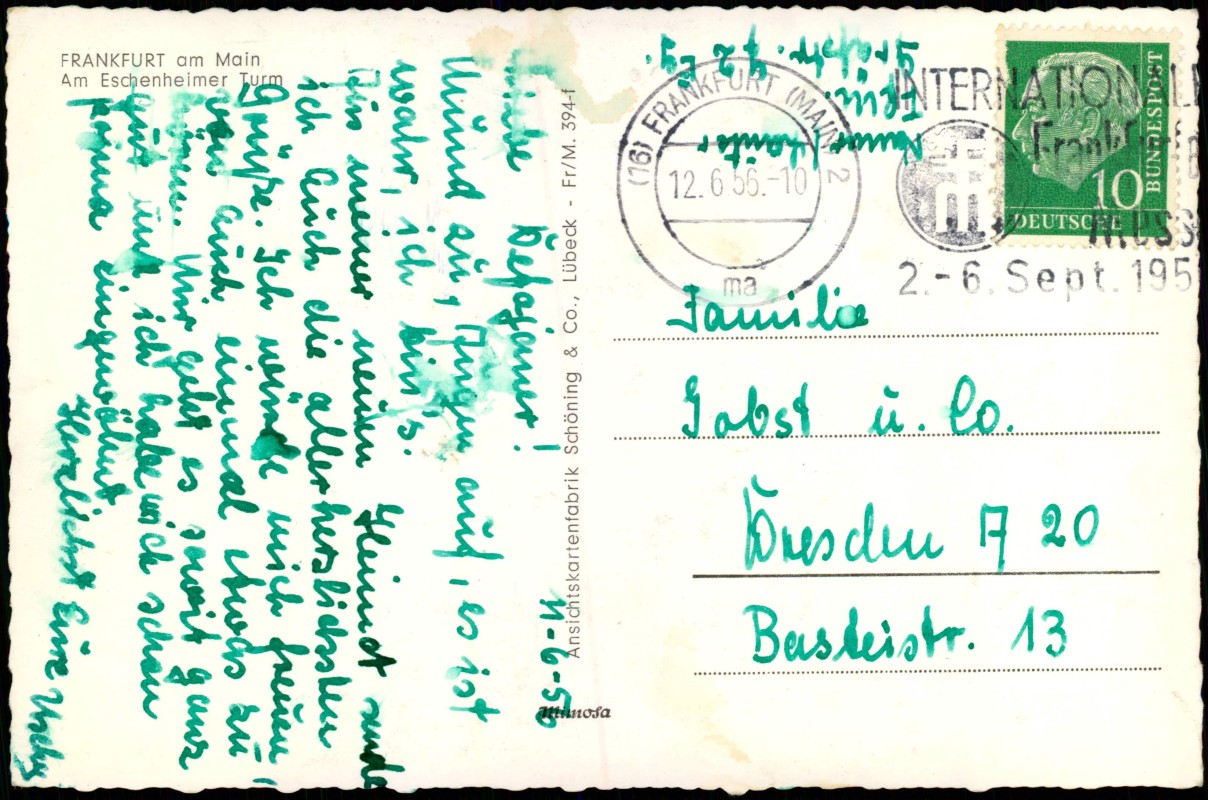 FRANKFURT am Main
Am Eschenheimer Turm
11-6-56
Mund zu, Augen auf, es ist
wahr, ich bin's.
Aus meiner neuen Heimat sende
ich Euch die allerherzlichsten
Grüße. Ich würde mich freuen,
von Euch einmal etwas zu
hören. Mir geht es soweit ganz
gut und ich habe mich schon
prima eingewöhnt.
Herzlichst Eure
Ansichtskartenfabrik Schöning & Co., Lübeck - Fr/M. 394-f
Mimosa
(16) FRANKFURT (MAIN) 2
12.6.56.-10
ma
INTERNATIONALE
Frankfurter
2.-6. Sept. 195
10
DEUTSCHE
BUNDESPOST
Familie
Jobst u. Co.
Dresden A 20
Basteistr. 13